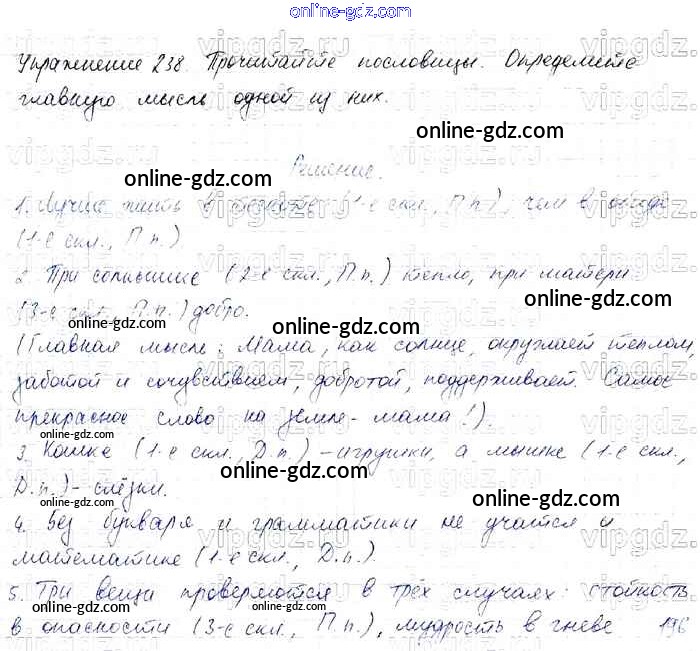 online-gdz.com
Упражнение 238. Прочитайте пословицы. Определите
главную мысль одной из них.
online-gdz.com
Решение.
online-gdz.com
1. Лучше жить в тесноте (1-е скл., П.п.), чем в обиде
online-gdz.com
(1-е скл., П.п.)
2. При солнышке (2-е скл., П.п.) тепло, при матери
online-gdz.com
(3-е скл., П.п.) добро.
online-gdz.com
online-gdz.com
(Главная мысль: Мама, как солнце, окружает теплом,
заботой и сочувствием, добротой, поддерживает. Самое
прекрасное слово на земле - мама!).
online-gdz.com
online-gdz.com
3. Кошке (1-е скл., Д.п.) - игрушки, а мышке (1-е скл.,
online-gdz.com
Д.п.) - слёзки.
online-gdz.com
4. Без букваря и грамматики не учатся и
математике (1-е скл., Д.п.).
online-gdz.com
5. Три вещи проверяются в трёх случаях: стойкость
online-gdz.com
в опасности (3-е скл., П.п.), мудрость в гневе 196
online-gdz.com